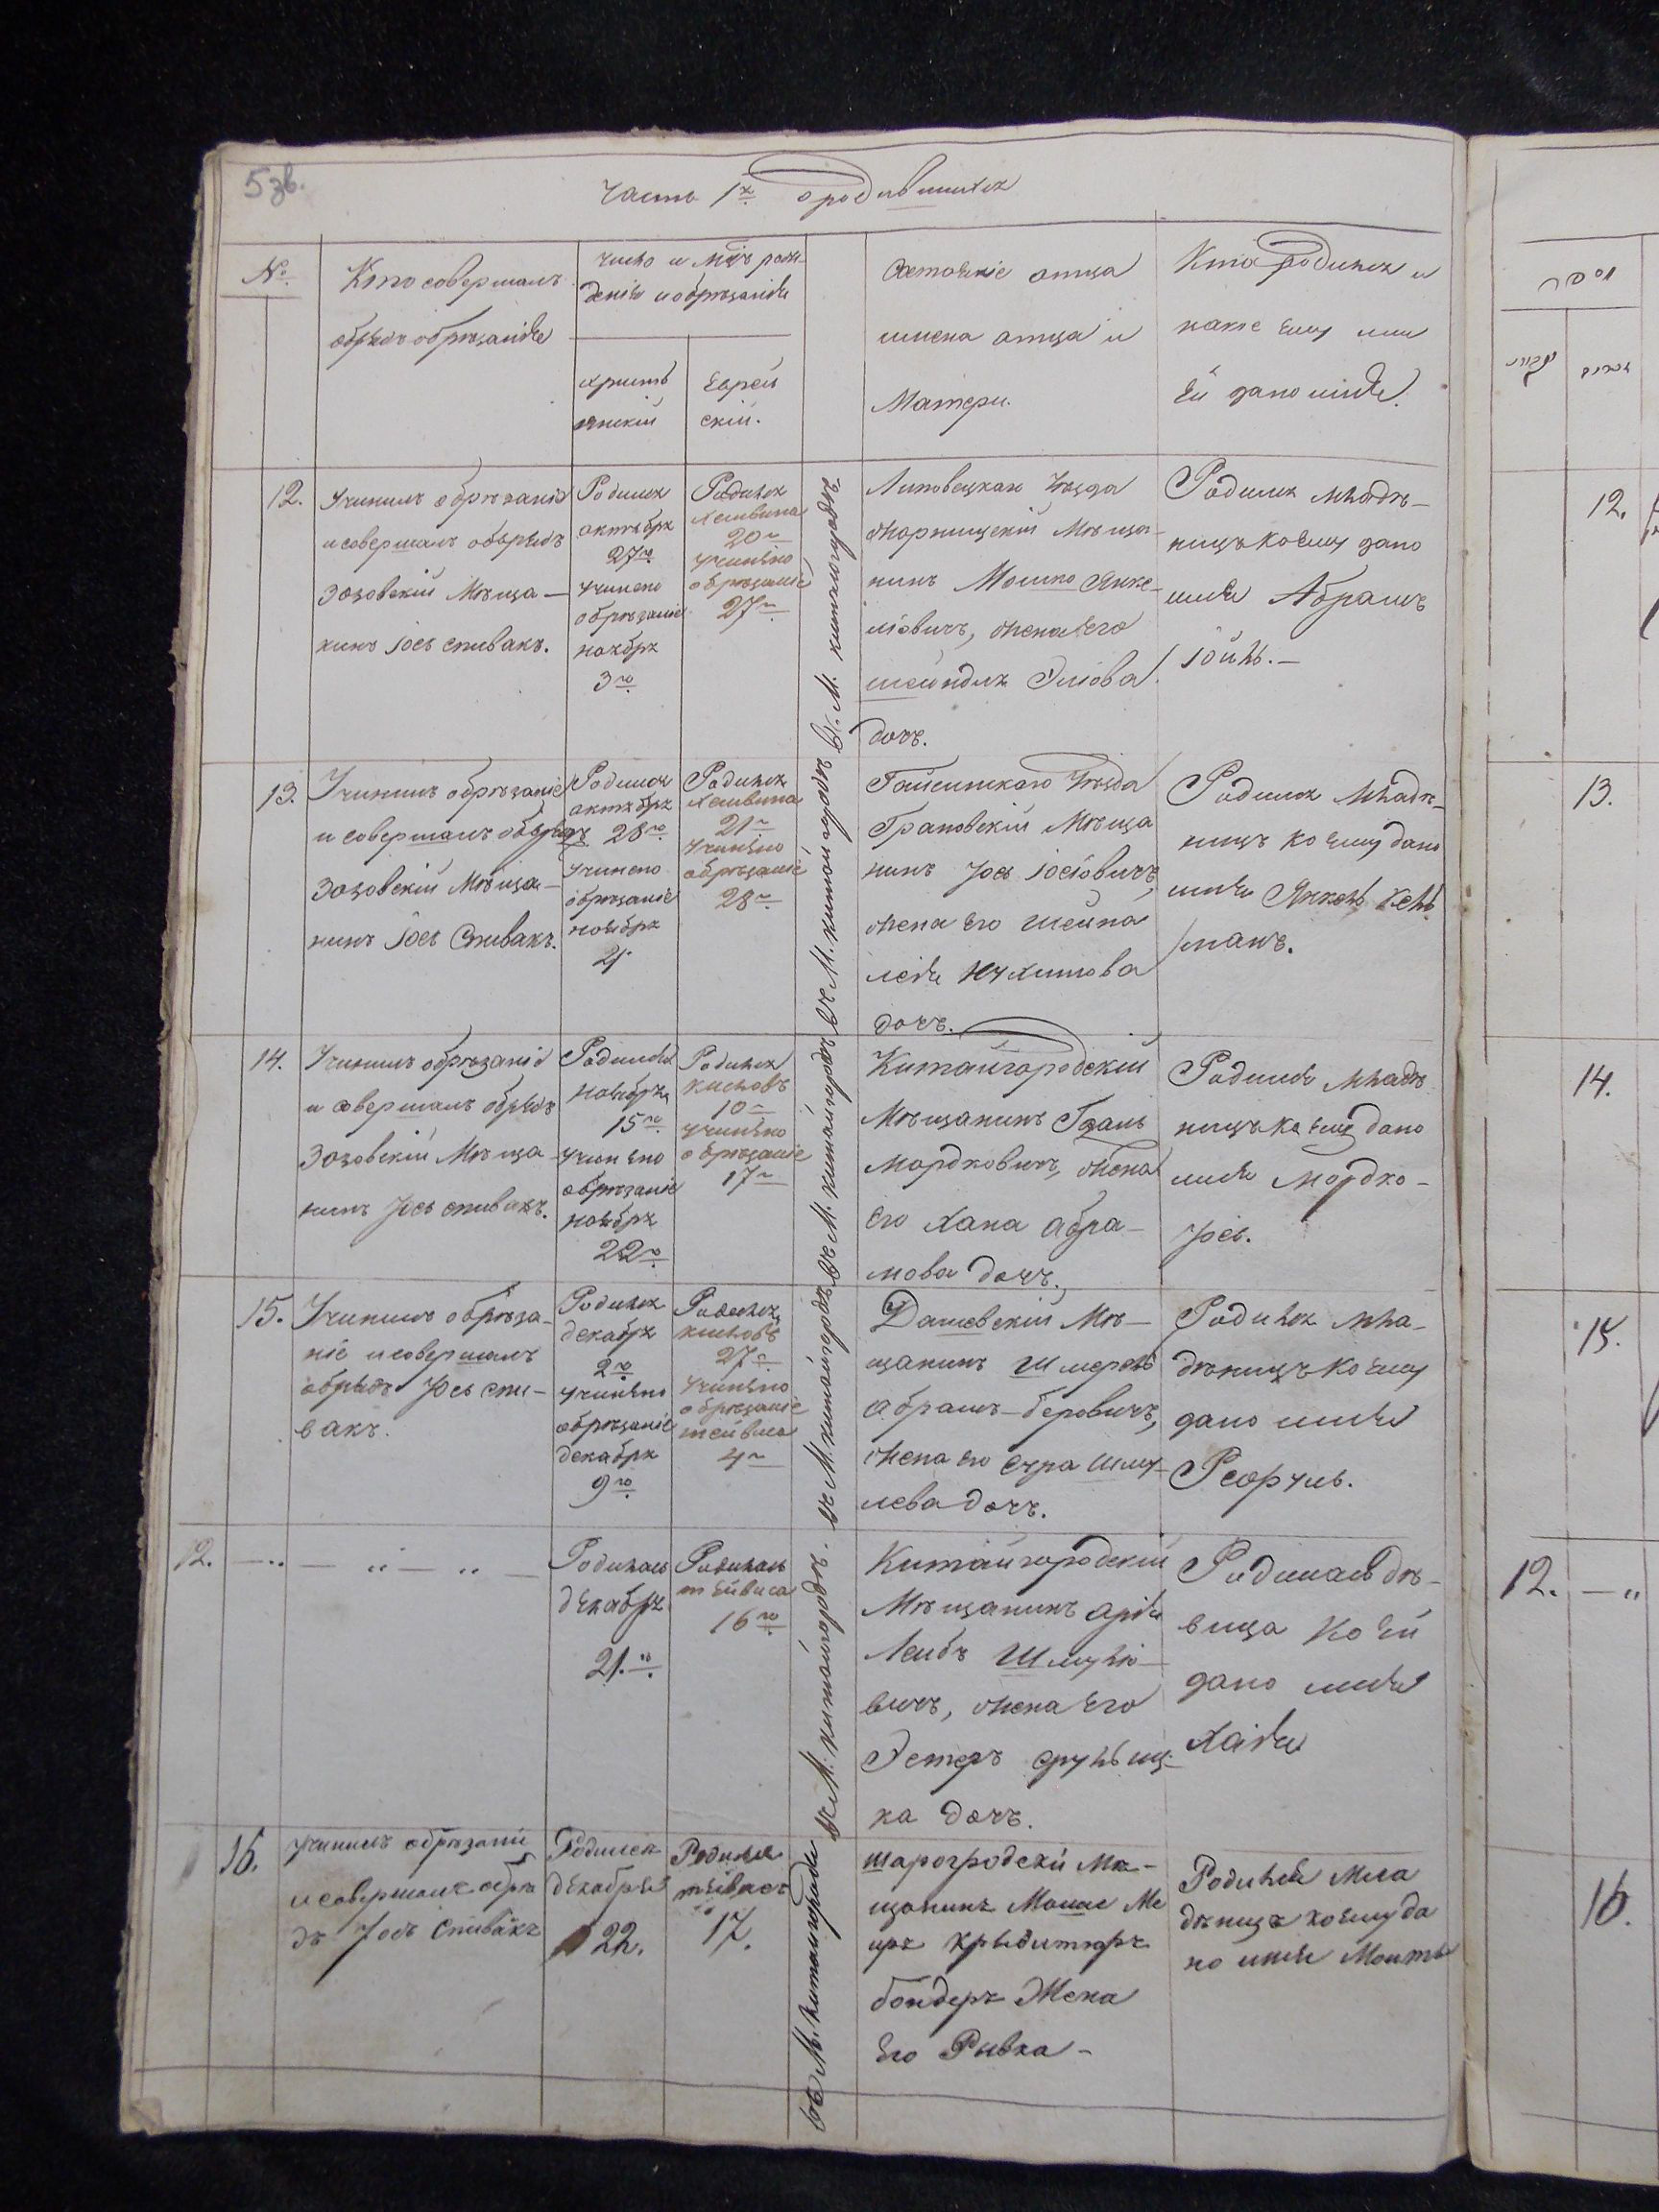 5зв.
Часть 1ᵃ о родившихся
№
Кто совершалъ
обрядъ обрѣзанія
число и мѣсяцъ рож-
денія и обрѣзанія
христі
янскій
Еврей
скій.
Состояніе отца
имена отца и
Матери.
Кто родился и
какое Ему или
Ей дано имя.
12.
Учинилъ обрѣзаніе
и совершалъ обрядъ
Зозовскій Мѣща-
нинъ Іось Спивакъ.
Родился
октябрѣ
27го
учинено
обрѣзаніе
ноябрѣ
3го
Родился
Хешвина
20го
учинено
обрѣзаніе
27го
въ М. китайгородѣ
Липовецкаго Уѣзда
Мѣща-
нинъ Мошко Янке-
ліовичъ, жена Его
шейндля Эліова
дочь.
Родился младѣ-
нецъ коему дано
имя Абрамъ
Іойль.-
13.
Учинилъ обрѣзаніе
и совершалъ обрядъ
Зозовскій Мѣща-
нинъ Іось Спивакъ.
Родился
октябрѣ
28го
учинено
обрѣзаніе
ноября
4.
Родился
Хешвина
21го
учинено
обрѣзаніе
28го
въ М. китайгородѣ
Гайсинскаго Уѣзда
Грановскій Мѣща
нинъ Іось Іосіовичъ,
жена Его Шейна
лея Нухимова
дочь.
Родился Младѣ-
нецъ коему дано
имя Янкель Кель
манъ.
14.
Учинилъ обрѣзаніе
и совершалъ обрядъ
Зозовскій Мѣща-
нинъ Іось спивакъ.
Родился
ноября
15го
учинено
обрѣзаніе
ноябрѣ
22го
Родился
кисловъ
10го
учинено
обрѣзаніе
17го
въ М. китайгородѣ
Китайгородскій
Мѣщанинъ
Мордковичъ, жена
Его Хана Абра-
мова дочь.
Родился Младѣ
нецъ коему дано
имя Мордко-
Іось.
15.
Учинилъ обрѣза-
ніе и совершалъ
обрядъ Іось спи-
вакъ.
Родился
декабрѣ
2го
учинено
обрѣзаніе
декабря
9го
Родился
кисловъ
27го
Учинено
обрѣзаніе
тейвиса
4го
въ М. китайгородѣ
Дашевскій Мѣ-
щанинъ Шмерель
Абрамъ-Беровичъ,
жена Его Сура Шму-
лева дочь.
Родился мла-
дѣнецъ коему
дано имя
12.
Родилась
декабрѣ
21.го
Родилась
тейвиса
16го
въ М. китайгородѣ.
Китайгородскій
Мѣщанинъ Арія
Лейбъ Шмуліо-
вичъ, жена Его
Эстеръ
дочь.
Родилась дѣ-
вица коей
дано имя
Хайя
16.
учинилъ обрѣзаніе
и совершалъ обря
дъ Іось Спивакъ
Родился
декабрѣ
22.
Родился
тейвасъ
17.
въ М. Китайгородѣ
шарогродскій Мѣ-
щанинъ Мошіе Ме
иръ
бондеръ Жена
Его Рывка-
Родился Мла
дѣнецъ коему да
но имя
12.
13.
14.
15.
12.
16.